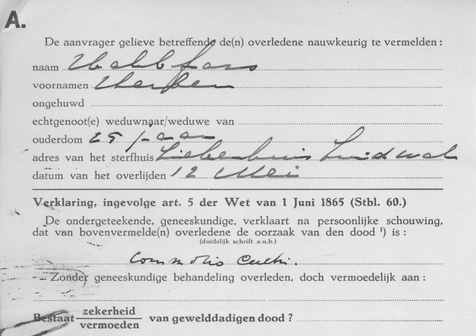 A.
De aanvrager gelieve betreffende de(n) overledene nauwkeurig te vermelden :
naam
voornamen
ongehuwd
echtgenoot(e) weduwnaar/weduwe van
ouderdom 25 jaar
adres van het sterfhuis
datum van het overlijden 12 Mei
Verklaring, ingevolge art. 5 der Wet van 1 Juni 1865 (Stbl. 60.)
De ondergeteekende, geneeskundige, verklaart na persoonlijke schouwing,
dat van bovenvermelde(n) overledene de oorzaak van den dood ¹) is :
(duidelijk schrift a.u.b.)
Commotio
Zonder geneeskundige behandeling overleden, doch vermoedelijk aan :
Bestaat zekerheid
vermoeden van gewelddadigen dood ?